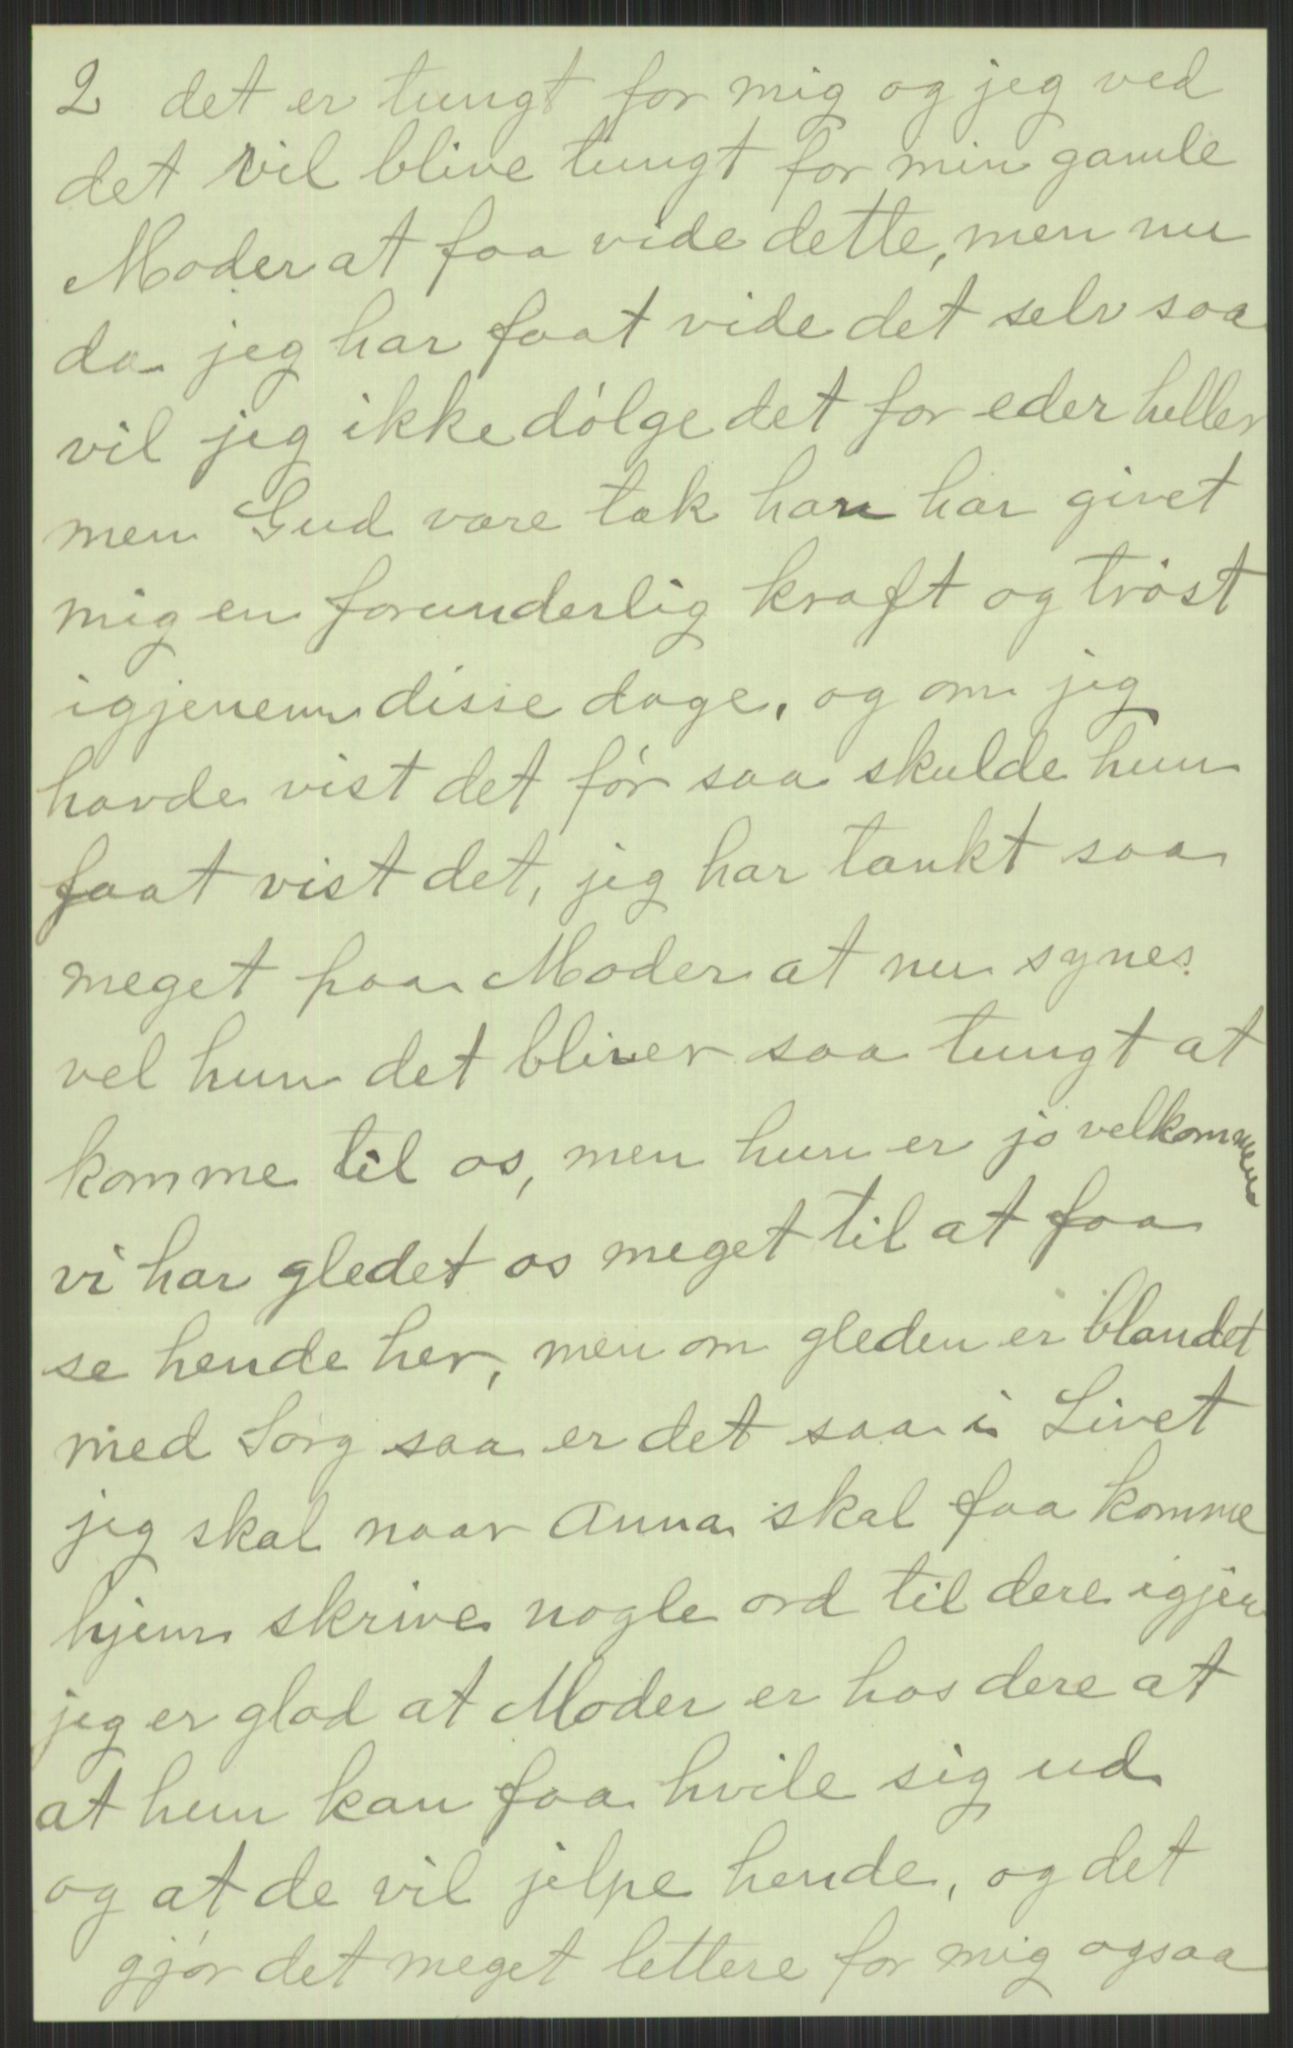 2 det er tungt for mig og jeg ved
det vil blive tungt for min gamle
Moder at faa vide dette, men nu
da jeg har faat vide det selv saa
vil jeg ikke dólge det for eder heller
men Gud vare tak han har givet
mig en forunderlig kraft og tróst
igjenem disse dage, og om jeg
havde vist det fór saa skulde hun
faat vist det, jeg har tankt saa
meget paa Moder at nu synes
vel hun det bliver saa tungt at
komme til os, men hun er jo velkommen
vi har gledet os meget til at faa
se hende her, men om gleden er blandet
med Sorg saa er det saa i Livet
jeg skal naar Anna skal faa komme
hjem skrive nogle ord til dere igjen
jeg er glad at Moder er hos dere at
at hun kan faa hvile sig ud
og at de vil jelpe hende, og det
gjór det meget lettere for mig ogsaa